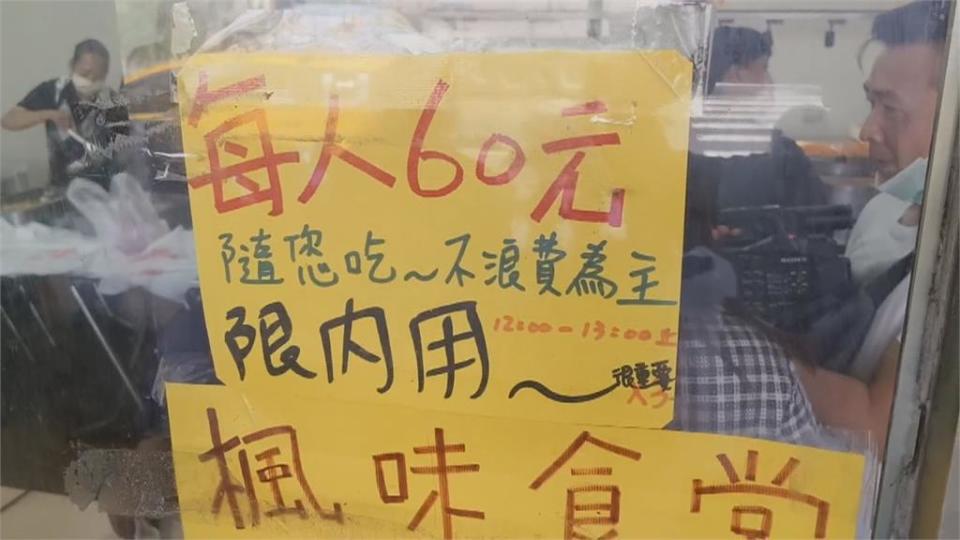 每人60元
隨您吃~不浪費為主
12:00-13:00止
限內用~很重要
X3
楓味食堂
SONY